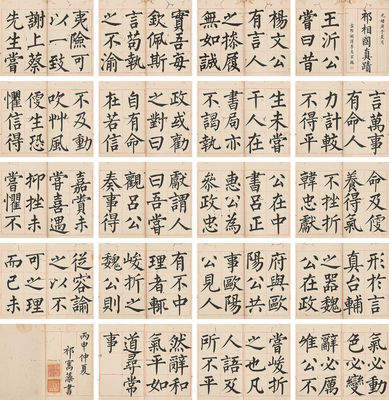 祁相國真蹟
王沂公
嘗曰昔
楊文公
有言人
之操履
無如誠
實吾每
欽佩斯
言苟執
之不渝
夷險可
以一致
謝上蔡
先生嘗
言萬事
有命人
力計較
生未嘗
干人在
書局亦
不謁執
政或勸
之對曰
自有命
在若信
不及動
吹草風
便生恐
懼信得
及便
養得氣
不挫折
韓忠獻
公在中
書呂正
惠公為
參政忠
獻謂人
曰吾嘗
觀呂公
奏事得
嘉賞未
嘗喜遇
抑挫未
嘗懼不
形於言
真台輔
之器魏
公在政
府與歐
陽公共
事歐陽
公見人
有不中
理者輒
峻折之
魏公則
從容諭
之以不
可之理
而已未
嘗峻折
之也凡
人語及
所不平
氣必動
色必變
辭必厲
惟公不
然辭和
氣平如
道尋常
事
丙申仲夏
祁寯藻書